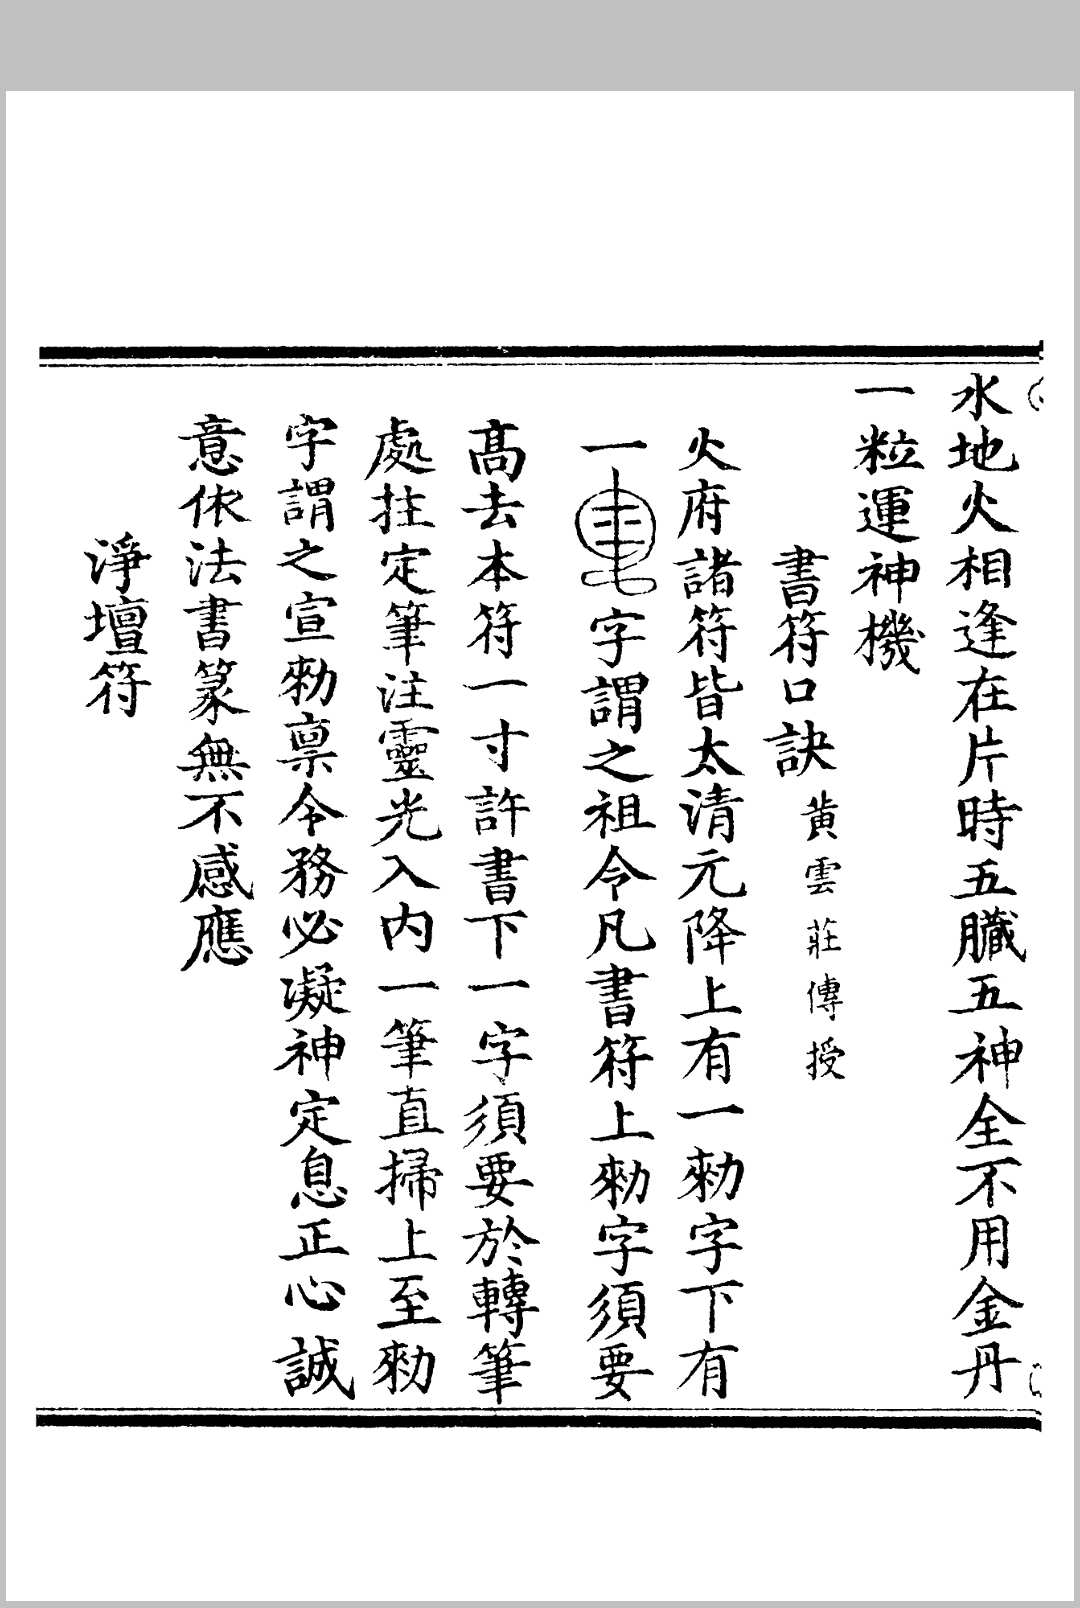 水地火相逢在片時五臟五神全不用金丹
一粒運神機
書符口訣黄雲莊傳授
火府諸符皆太清元降上有一勑字下有
一字謂之祖令凡書符上勑字須要
高去本符一寸許書下一字須要於轉筆
處拄定筆注靈光入内一筆直掃上至勑
字謂之宣勑禀令務必凝神定息正心誠
意依法書篆無不感應
淨壇符